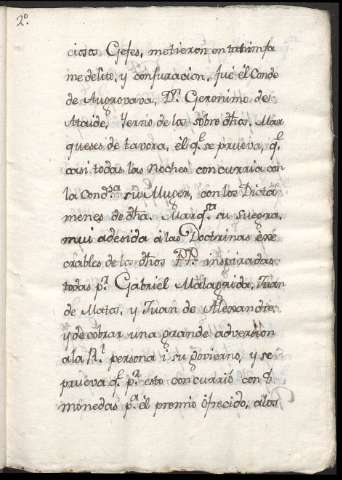 2º.
ciosos Gefes, metieron en tan infa
me delito, y conjuracion, fué el Conde
de Augrovava, Dn. Geronimo de
Ataide, Yerno de los sobre dhos. Mar
queses de tavora, él q.e se prueva, q.e
casi todas las Noches concurria con
la Cond.sa su Muger, con los Dicta
menes de dha. Marq.sa su suegra,
mui adesida á las Doctrinas exe
crables de los dhos PP.s inspiradas
todas p.r Gabriel Malagrida, Juan
de Matos, y Juan de Alexandre,
y de cobrar una grande adversion
a la Rl. persona i su govierno, y se
prueva q.e p.a esto concurrió con 8
monedas p.a el premio ofrecido, a los